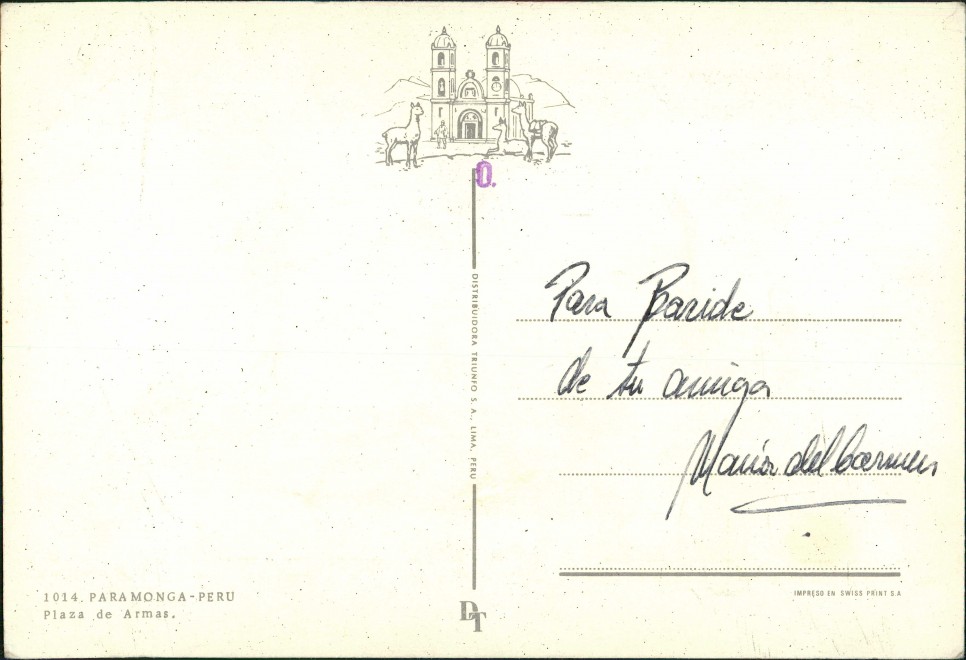 0.
DISTRIBUIDORA TRIUNFO S. A., LIMA, PERU
Para Baride
de tu amiga
María del Carmen
1014. PARAMONGA-PERU
Plaza de Armas.
DT
IMPRESO EN SWISS PRINT S.A